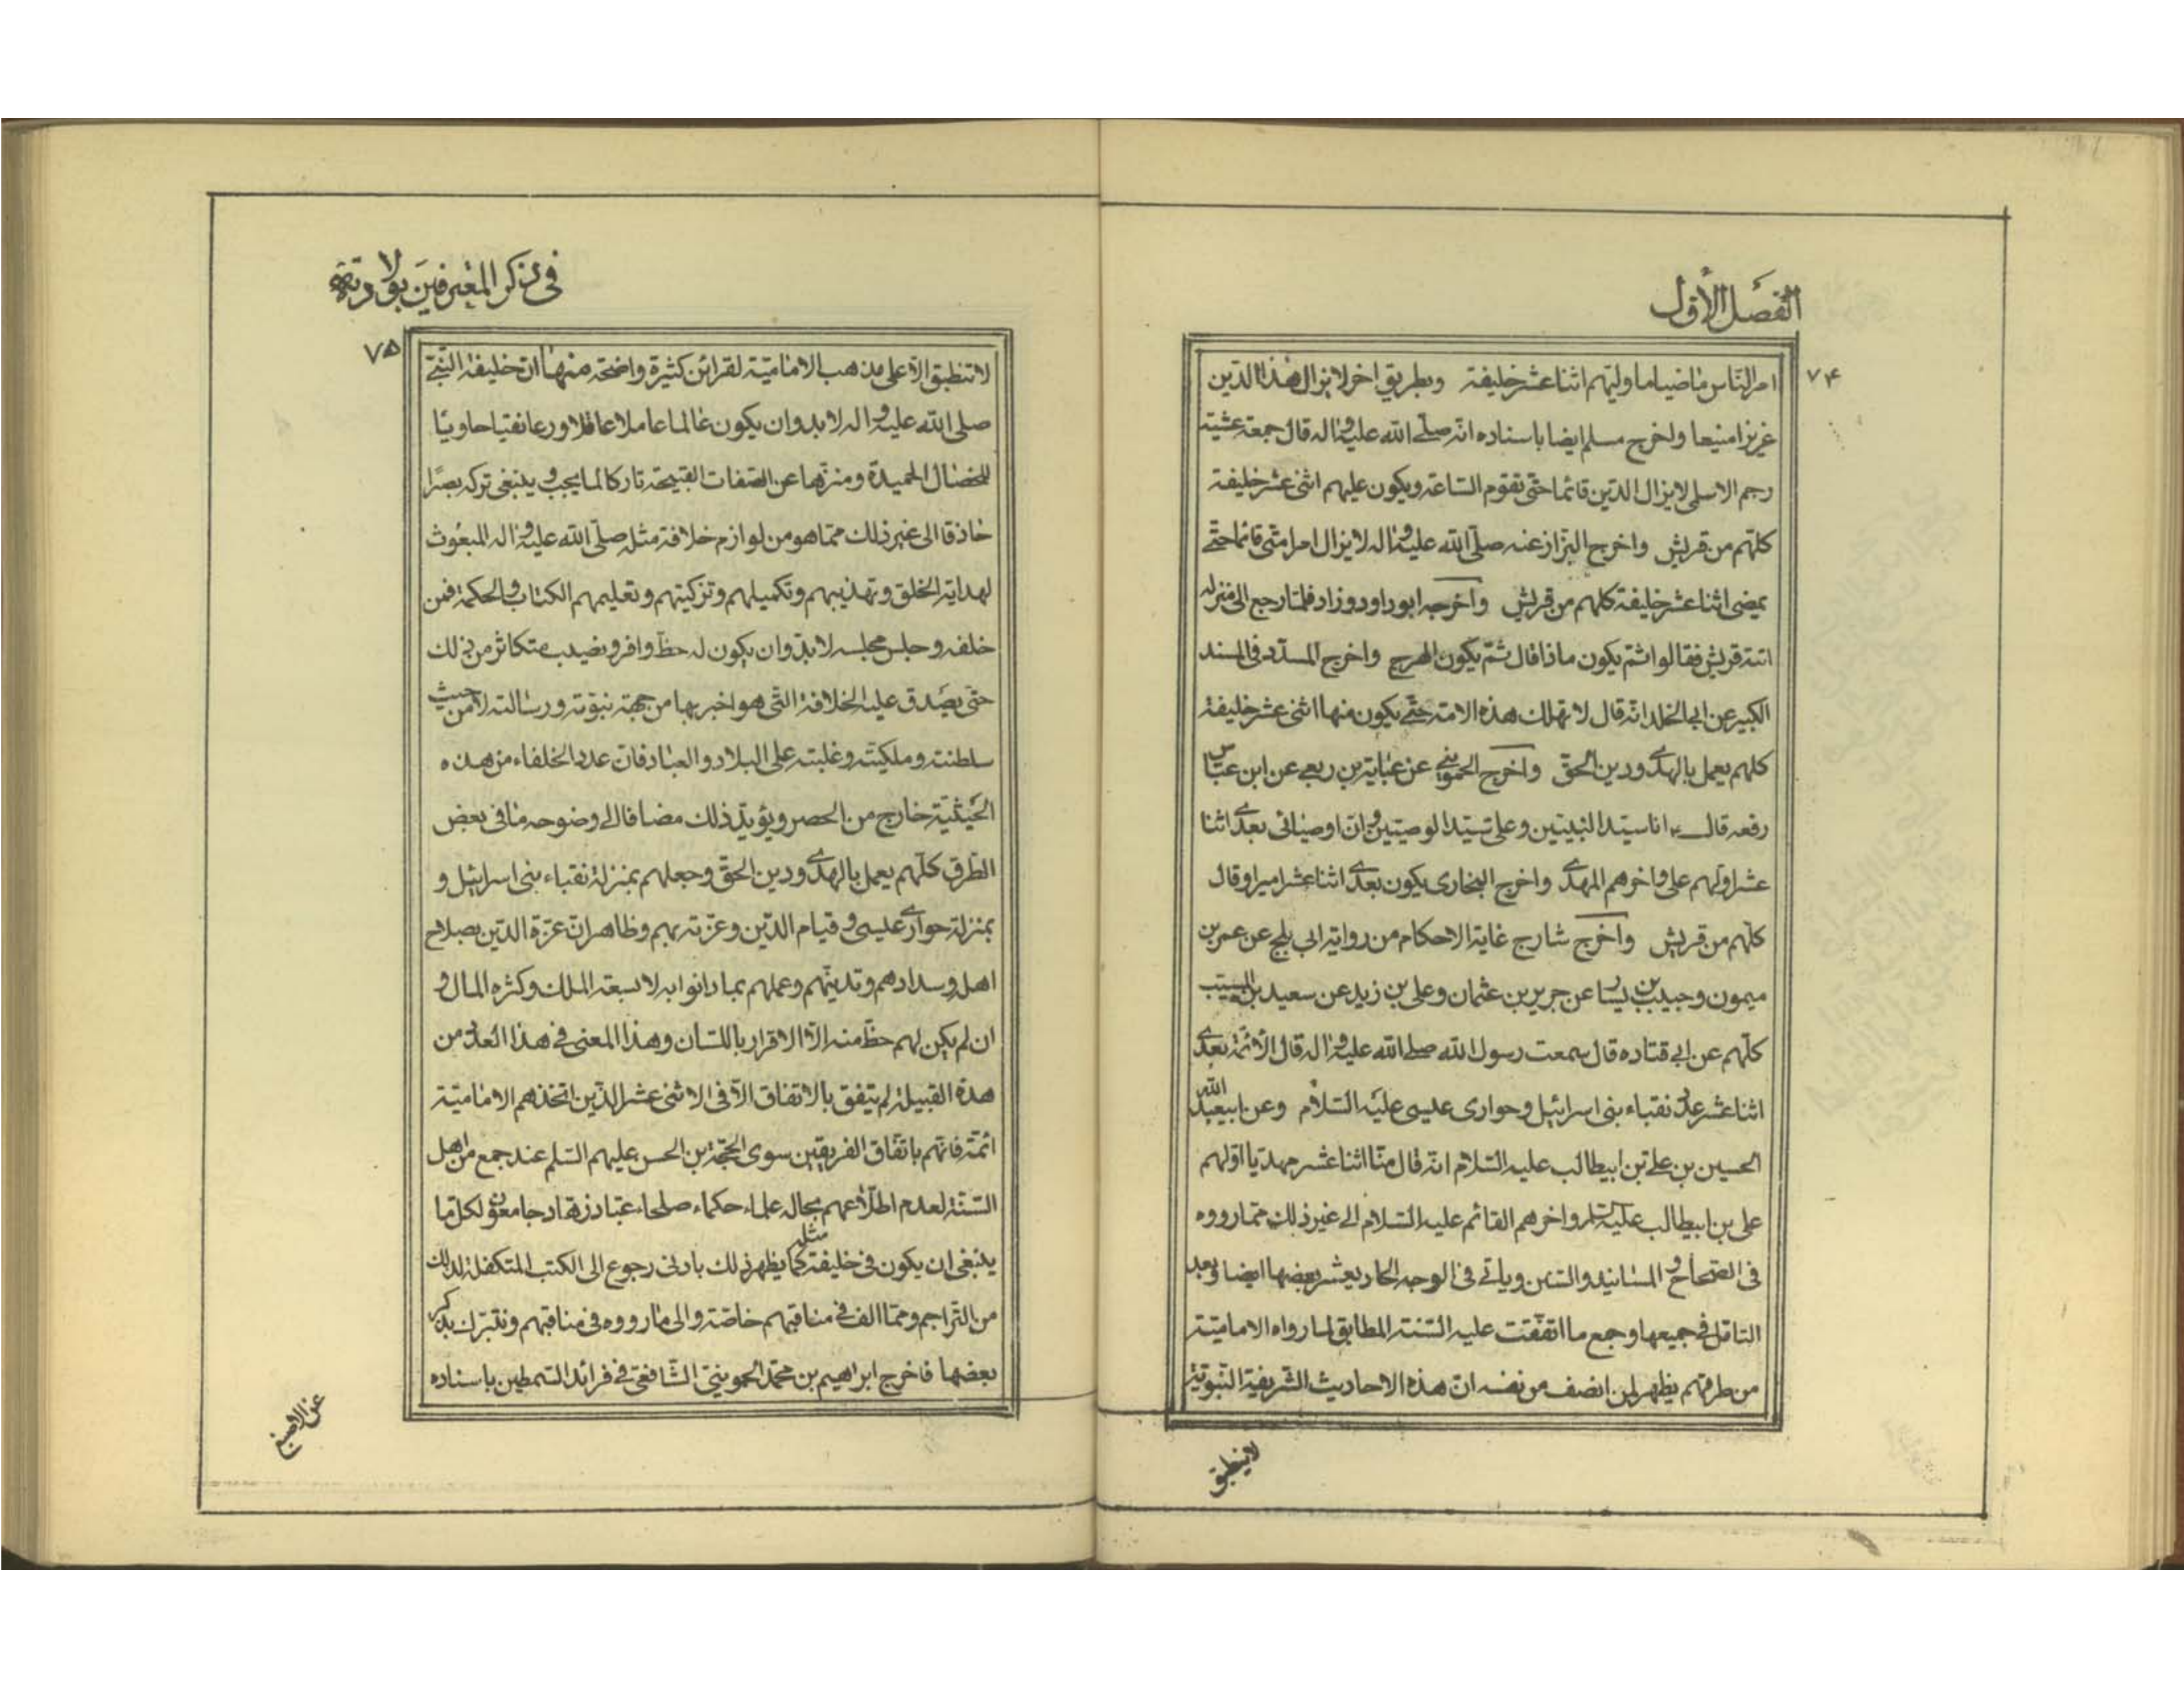 الفصل الأول
٧۴
امر الناس ماضيا ما وليهم اثنا عشر خليفة وبطريق اخر لا يزال هذا الدين
عزيزا منيعا واخرج مسلم ايضا باسناده انه صلى الله عليه واله قال جمعة عشية
رجم الاسلمى لا يزال الدين قائما حتى تقوم الساعة ويكون عليهم اثنى عشر خليفة
كلهم من قريش واخرج البزاز عنه صلى الله عليه واله لا يزال امر امتى قائما حتى
يمضى اثنا عشر خليفة كلهم من قريش واخرجه ابوداود وزاد فلما رجع الى منزله
اتته قريش فقالوا ثم يكون ماذا قال ثم يكون الهرج واخرج المسدد فى المسند
الكبير عن ابى الخلد انه قال لا تهلك هذه الامة حتى يكون منها اثنى عشر خليفة
كلهم يعمل بالهدى ودين الحق واخرج الحموينى عن عباية بن ربعى عن ابن عباس
رفعه قال انا سيد النبيين وعلى سيد الوصيين وان اوصيائى بعدى اثنا
عشر اولهم على واخرهم المهدى واخرج البخارى يكون بعدى اثنا عشر اميرا وقال
كلهم من قريش واخرج شارح غاية الاحكام من رواية ابى بلج عن عمر بن
ميمون وحبيب بن يسار عن جرير بن عثمان وعلى بن زيد عن سعيد بن المسيب
كلهم عن ابى قتاده قال سمعت رسول الله صلى الله عليه واله قال الأئمة بعدى
اثنا عشر عدد نقباء بنى اسرائيل وحوارى عيسى عليه السلام وعن ابيعبد الله
الحسين بن على بن ابيطالب عليه السلام انه قال منا اثنا عشر مهديا اولهم
على بن ابيطالب عليه السلم واخرهم القائم عليه السلام الى غير ذلك مما رووه
فى الصحاح و المسانيد والسنن وياتى فى الوجه الحاديعشر بعضها ايضا وبعد
التامل فى جميعها وجمع ما اتفقت عليه السنة المطابق لما رواه الامامية
من طرقهم يظهر لمن انصف من نفسه ان هذه الاحاديث الشريفة النبوية
لا ينطبق
فى ذكر المعترفين بولادته
٧۵
لا تنطبق الا على مذهب الامامية لقرائن كثيرة واضحة منها ان خليفة النبى
صلى الله عليه واله لا بد وان يكون عالما عاملا عاقلا ورعا نقيا حاويا
للخصال الحميدة ومنزها عن الصفات القبيحة تاركا لما يجب و ينبغى تركه بصيرا
حاذقا الى غير ذلك مما هو من لوازم خلافة مثله صلى الله عليه واله المبعوث
لهداية الخلق وتهذيبهم وتكميلهم وتزكيتهم وتعليمهم الكتاب والحكمة فمن
خلفه وجلس مجلسه لا بد وان يكون له حظ وافر ونصيب متكاثر من ذلك
حتى يصدق عليه الخلافة التى هو اخبر بها من جهة نبوته ورسالته لا من حيث
سلطنته وملكيته وغلبته على البلاد والعباد فان عدد الخلفاء من هذه
الحيثية خارج من الحصر ويؤيد ذلك مضافا الى وضوحه ما فى بعض
الطرق كلهم يعمل بالهدى ودين الحق وجعلهم بمنزلة نقباء بنى اسرائيل و
بمنزلة حوارى عيسى و قيام الدين وعزته بهم وظاهر ان عزة الدين بصلاح
اهله وسدادهم وتدينهم وعملهم بما دانوا به لا بسعة الملك وكثره المال و
ان لم يكن لهم حظ منه الا الاقرار باللسان وهذا المعنى فى هذا العدد من
هذه القبيلة لم يتفق بالاتفاق الا فى الاثنى عشر الذين اتخذهم الامامية
ائمة فانهم باتفاق الفريقين سوى الحجة بن الحسن عليهم السلم عند جمع من اهل
السنة لعدم اطلاعهم بحاله علماء حكماء صلحاء عباد زهاد جامعون لكل ما
ينبغى ان يكون فى خليفة مثله كما يظهر ذلك بادنى رجوع الى الكتب المتكفلة لذلك
من التراجم ومما الف فى مناقبهم خاصة والى ما رووه فى مناقبهم ونتبرك بذكر
بعضها فاخرج ابراهيم بن محمد الحموينى الشافعى فى فرائد السمطين باسناده
عن الاصبغ